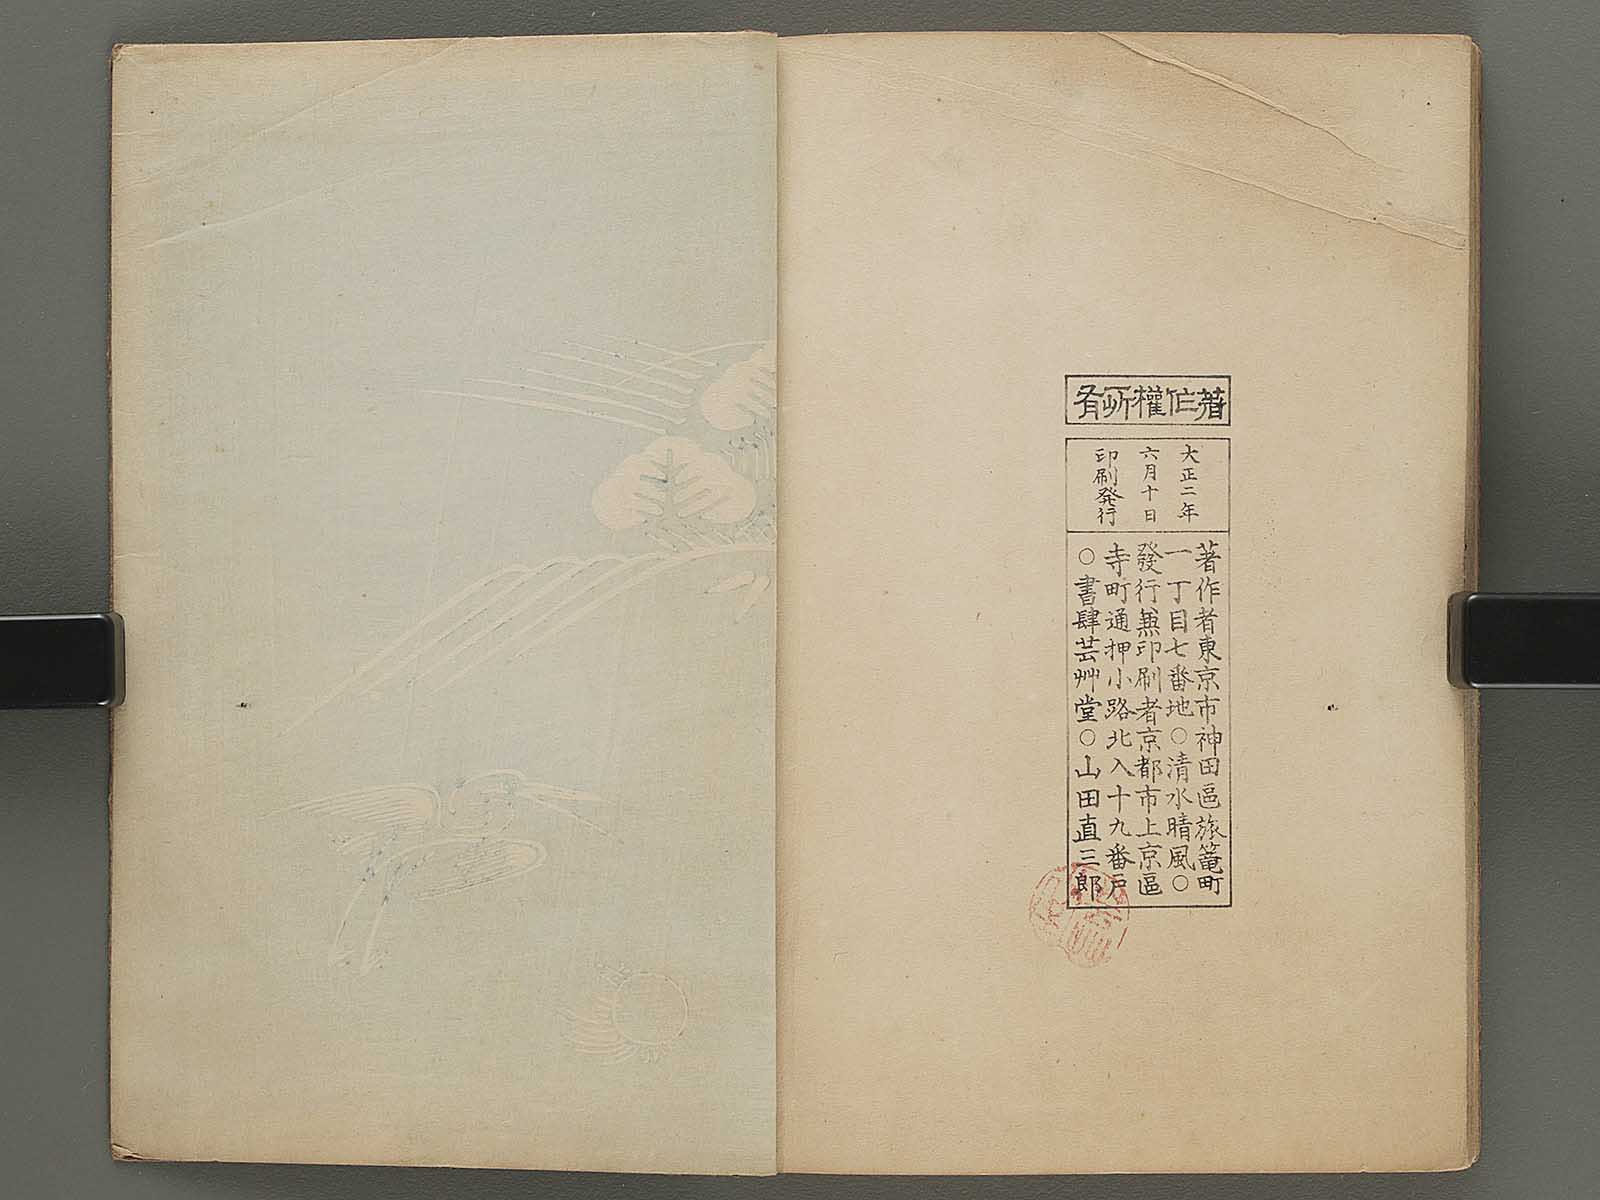 著作權所有
大正二年
六月十日
印刷発行
著作者東京市神田區旅篭町
一丁目七番地○清水晴風○
發行兼印刷者京都市上京區
寺町通押小路北入十九番戸
○書肆芸艸堂○山田直三郎